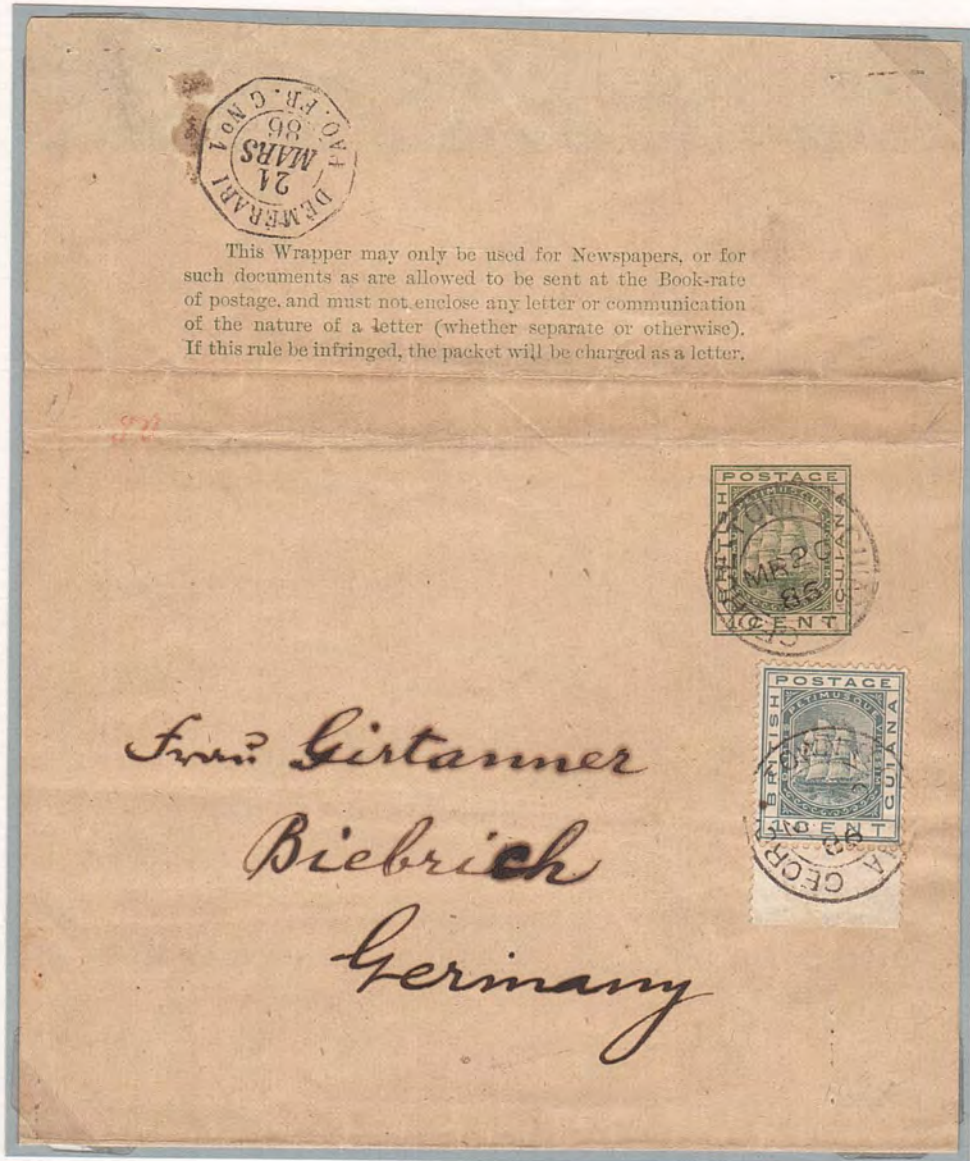 DEMERARI
21
MARS
86
PAQ. FR. G No 1
This Wrapper may only be used for Newspapers, or for
such documents as are allowed to be sent at the Book-rate
of postage, and must not enclose any letter or communication
of the nature of a letter (whether separate or otherwise).
If this rule be infringed, the packet will be charged as a letter.
POSTAGE
BRITISH
GUIANA
1 CENT
GEORGETOWN
MR 20
86
POSTAGE
BRITISH
PETIMUSQUE
GUIANA
1 CENT
Frau Girtanner
Biebrich
Germany